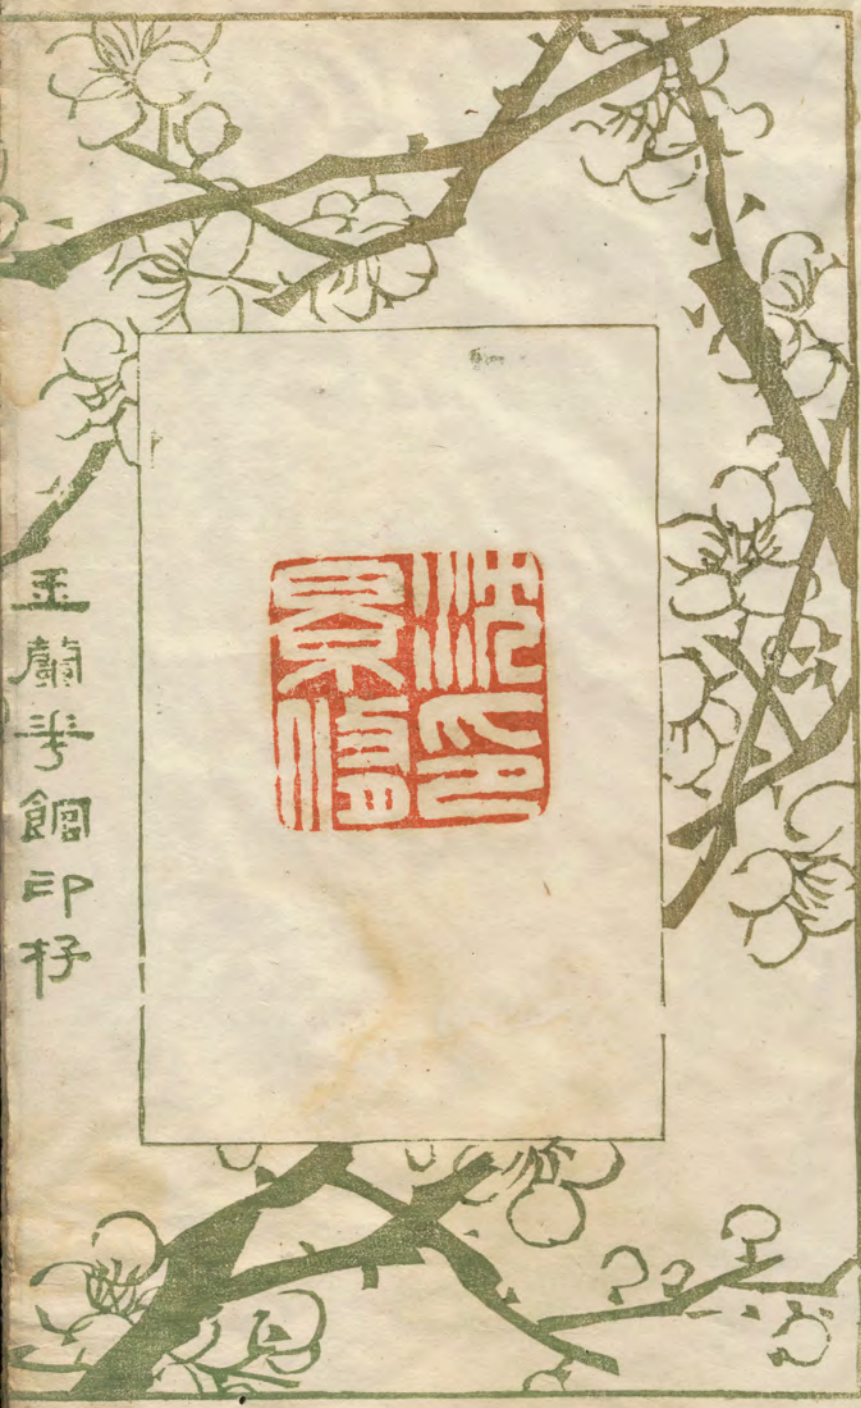 沈印
景修
玉蘭華館印存